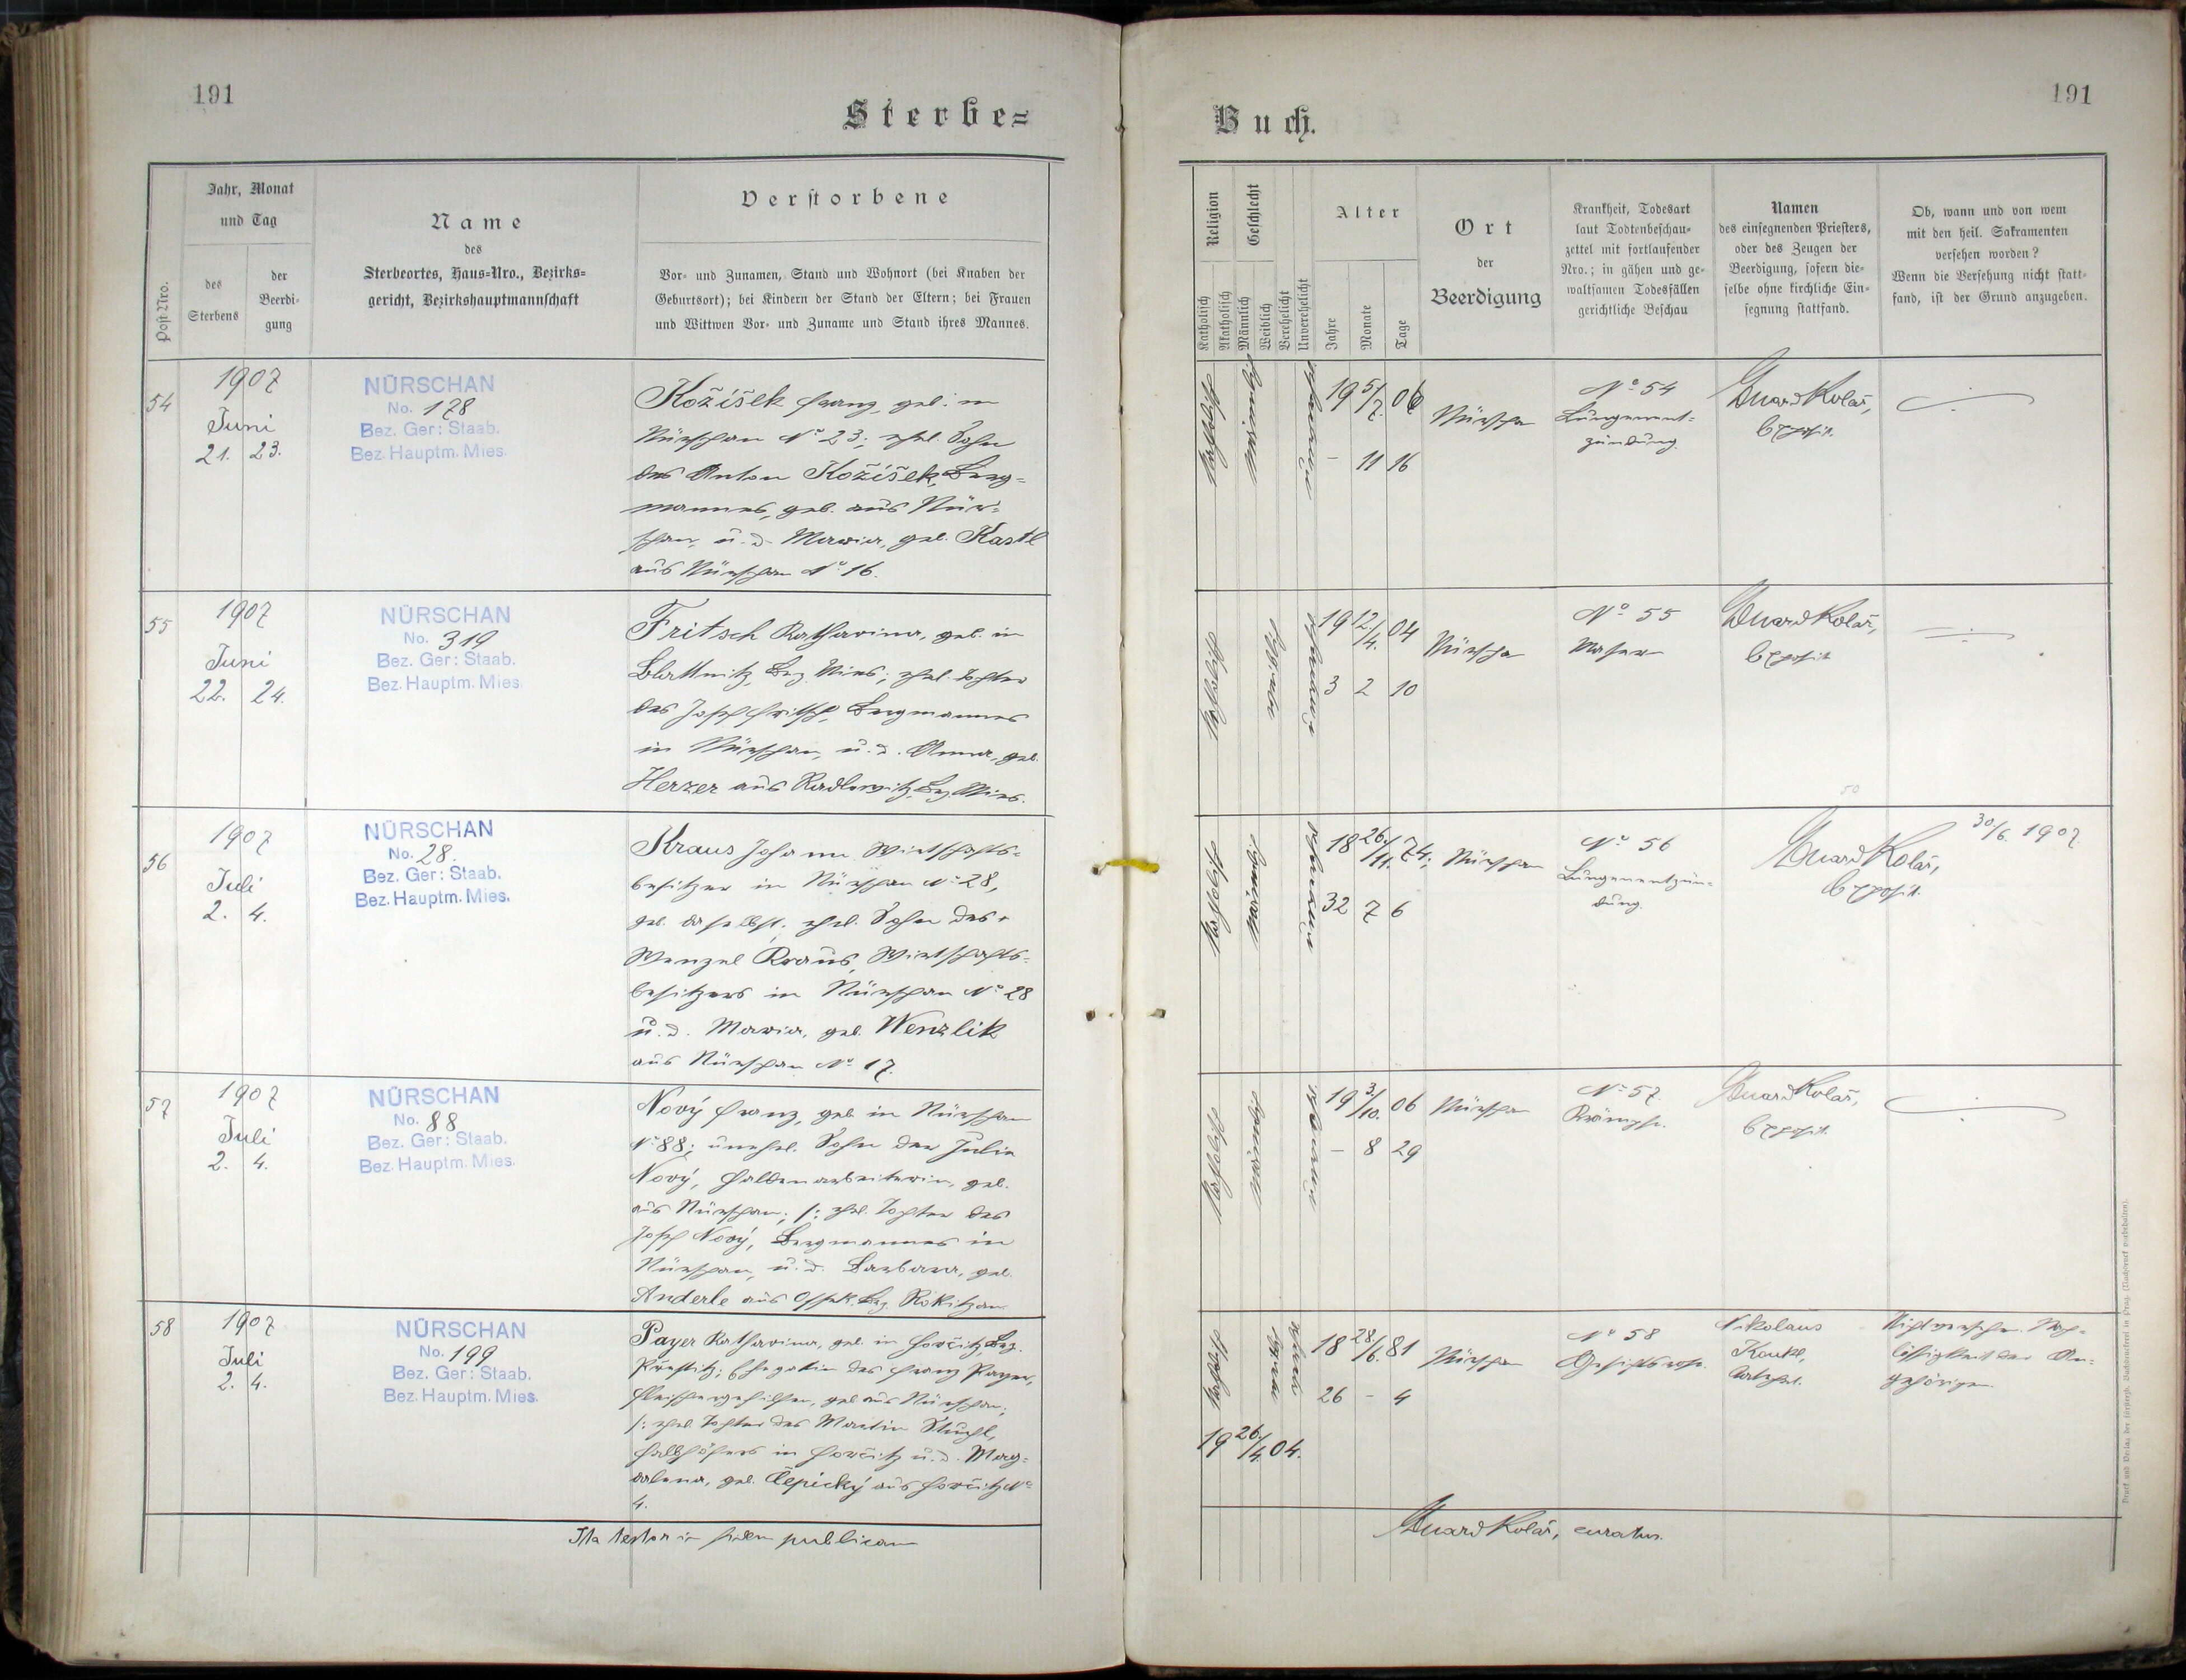 191
Sterbe=
Jahr, Monat
und Tag
des
Sterbens
der
Beerdi-
gung
Post-Nro.
Name
des
Sterbeortes, Haus-Nro., Bezirks-
gericht, Bezirkshauptmannschaft
Verstorbene
Vor- und Zunamen, Stand und Wohnort (bei Knaben der
Geburtsort); bei Kindern der Stand der Eltern; bei Frauen
und Wittwen Vor- und Zuname und Stand ihres Mannes.
54
1907
Juni
21. 23.
NÜRSCHAN
No. 178
Bez. Ger: Staab.
Bez. Hauptm. Mies.
Kožíšek Franz, geb. in
Nürschan No 23; ehel. Sohn
des Anton Kožíšek, Berg=
mannes, geb. aus Nür=
schan, u. d. Maria, geb. Kastl
aus Nürschan No 16.
55
1907
Juni
22. 24.
NÜRSCHAN
No. 319
Bez. Ger: Staab.
Bez. Hauptm. Mies.
Fritsch Katharina, geb. in
Blattnitz, Bez. Mies; ehel. Tochter
des Josef Fritsch, Bergmannes
in Nürschan, u. d. Anna, geb.
Herzer aus Radlowitz, Bez. Mies.
56
1907
Juli
2. 4.
NÜRSCHAN
No. 28.
Bez. Ger: Staab.
Bez. Hauptm. Mies.
Kraus Johann Wirtschafts=
besitzer in Nürschan No 28,
geb. daselbst. ehel. Sohn des
Wenzel Kraus, Wirtschafts=
besitzers in Nürschan No 28
u. d. Maria, geb. Wenzlik
aus Nürschan No 17.
57
1907
Juli
2. 4.
NÜRSCHAN
No. 88
Bez. Ger: Staab.
Bez. Hauptm. Mies.
Nový Franz, geb. in Nürschan
No 88; unehel. Sohn der Julie
Nový, Haldenarbeiterin, geb.
aus Nürschan; /: ehel. Tochter des
Josef Nový, Bergmannes in
Nürschan, u. d. Barbara, geb.
Anderle aus Bez. Rokitzan
58
1907
Juli
2. 4.
NÜRSCHAN
No. 199
Bez. Ger: Staab.
Bez. Hauptm. Mies.
Payer Katharina, geb. in Horčitz, Bez.
Přestitz; Ehegatin des Franz Payer,
Fleischergehilfen, geb. aus Nürschan;
/: ehel. Tochter des Martin
in Horčitz u. d. Mag=
dalena, geb. Čepický aus Horčitz No
4.
Ita testor in fidem publicam
191
Buch.
Religion
Katholisch
Akatholisch
Geschlecht
Männlich
Weiblich
Verehelicht
Unverehelicht
Alter
Jahre
Monate
Tage
Ort
der
Beerdigung
Krankheit, Todesart
laut Todtenbeschau-
zettel mit fortlaufender
Nro.; in gähen und ge-
waltsamen Todesfällen
gerichtliche Beschau
Namen
des einsegnenden Priesters,
oder des Zeugen der
Beerdigung, sofern die-
selbe ohne kirchliche Ein-
segnung stattfand.
Ob, wann und von wem
mit den heil. Sakramenten
versehen worden?
Wenn die Versehung nicht statt-
fand, ist der Grund anzugeben.
Katholisch
männlich
unehelich
19 5/7. 06
- 11 16
Nürschan
No 54
Lungenent=
zündung.
Eduard Kolář,
Exposit.
Katholisch
weiblich
19 12/4. 04
3 2 10
Nürschan
No 55
Masern
Eduard Kolář,
Exposit
50
Katholisch
männlich
18 26/11. 74;
32 7 6
Nürschan
No 56
Lungenentzün=
dung.
Eduard Kolář,
Exposit.
30/6. 1907.
Katholisch
männlich
19 3/10. 06
- 8 29
Nürschan
No 57.
Krämpfe.
Eduard Kolář,
Exposit.
Katholisch
weiblich
18 28/6. 81
26 - 4
19 26/4. 04.
Nürschan
No 58
Gesichtsrose.
Nikolaus
Katechet.
Nachlässigkeit der An=
gehörigen
Eduard Kolář, curatus.
Druck und Verlag der fürsterzb. Buchdruckerei in Prag. (Nachdruck vorbehalten).